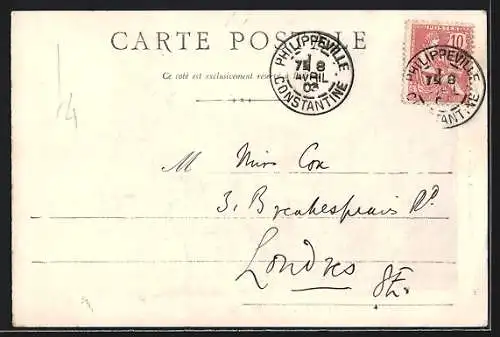 CARTE POSTALE
Ce côté est exclusivement réservé à
PHILIPPEVILLE
7E 8
AVRIL
03
CONSTANTINE
10
PHILIPPEVILLE
7E 8
CONSTANTINE
M Miss Cox
3, Breakespears Rd
Londres SE.